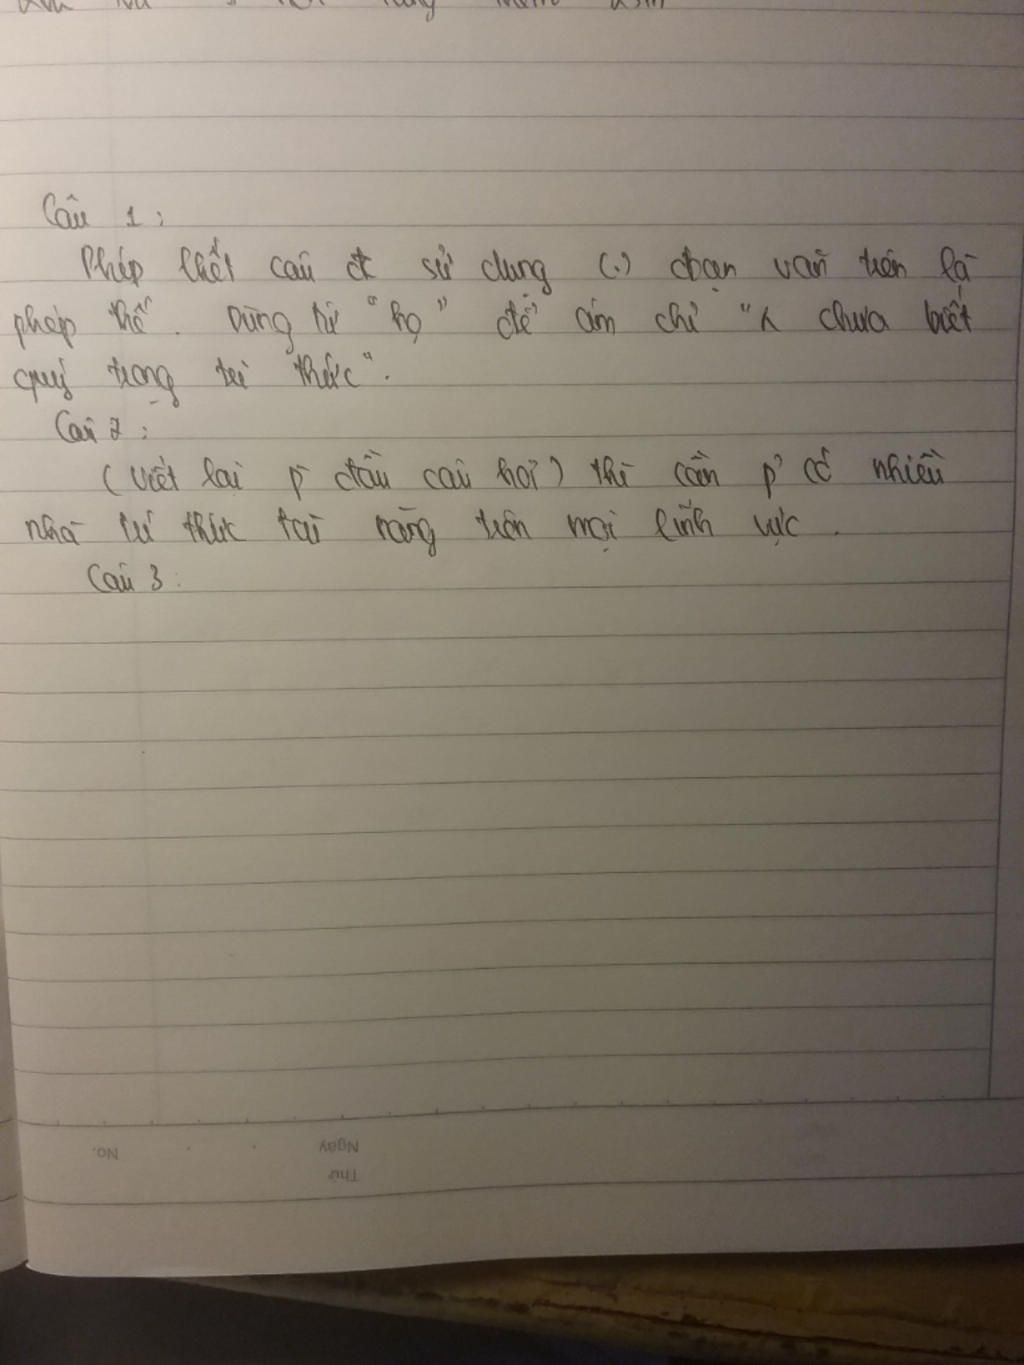 Câu 1:
Phép liết câu đc sử dụng (.) đoạn văn trên là
phép thế. Dùng từ "họ" để ám chỉ "k chưa biết
quý trọng tri thức".
Câu 2:
(Viết lại p đầu câu hỏi) thì cần p' có nhiều
nhà trí thức tài năng trên mọi lĩnh vực.
Câu 3:
No.
Ngày
Thứ